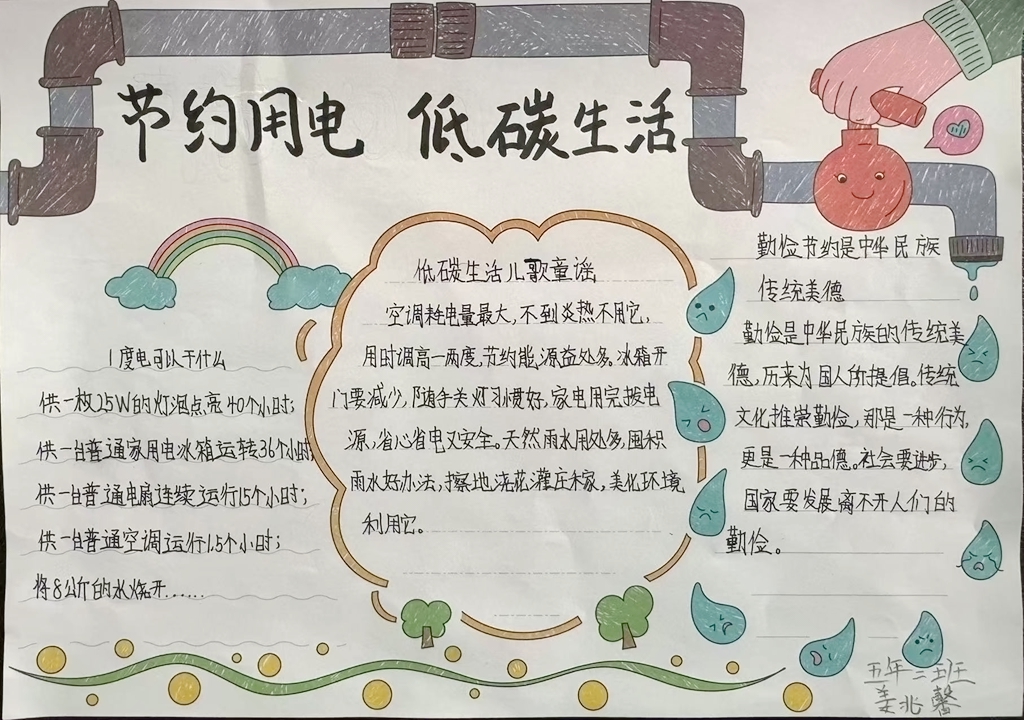 节约用电 低碳生活
1度电可以干什么
供一枚25W的灯泡点亮40个小时;
供一台普通家用电冰箱运转36个小时
供一台普通电扇连续运行15个小时;
供一台普通空调运行1.5个小时;
将8公斤的水烧开……
低碳生活儿歌童谣
空调耗电量最大,不到炎热不用它,
用时调高一两度,节约能源益处多。冰箱开
门要减少,随手关灯习惯好,家电用完拨电
源,省心省电又安全。天然雨水用处多,囤积
雨水好办法,擦地浇花灌庄稼,美化环境
利用它。
勤俭节约是中华民族
传统美德
勤俭是中华民族的传统美
德,历来为国人所提倡。传统
文化推崇勤俭,那是一种行为,
更是一种品德。社会要进步,
国家要发展离不开人们的
勤俭。
五年二班
姜兆馨